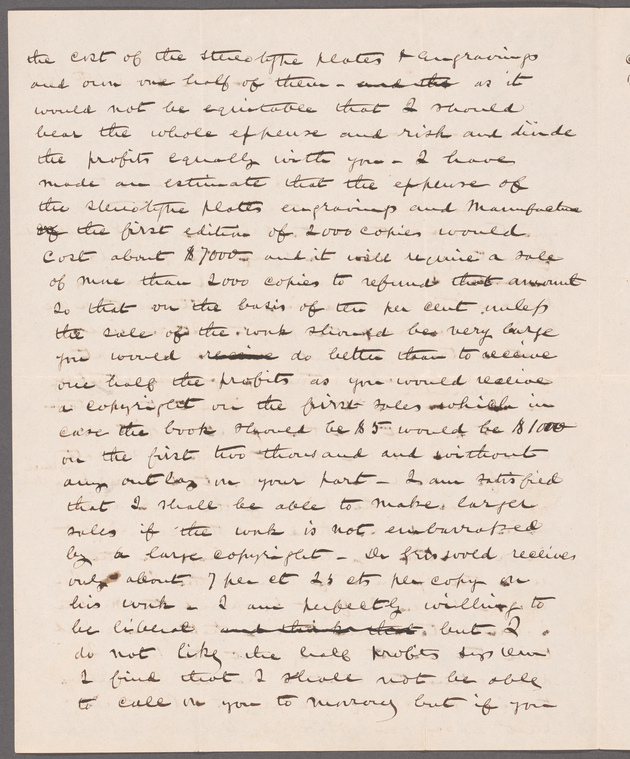 the cost of the stereotype plates & engravings
and own one half of them - and the as it
would not be equitable that I should
bear the whole expense and risk and divide
the profits equally with you - I have
made an estimate that the expense of
the stereotype plates engravings and manufacture
of the first edition of 2000 copies would
cost about $7000 and it will require a sale
of more than 2000 copies to refund that amount
So that on the basis of ten per cent unless
the sale of the work should be very large
you would receive do better than to receive
one half the profits as you would receive
a copyright on the first sales which in
case the book should be $5 would be $1000
on the first two thousand and without
any outlay on your part - I am satisfied
that I shall be able to make larger
sales if the work is not embarrassed
by a large copyright - Dr Griswold receives
only about 7 per ct 25 cts per copy on
his work - I am perfectly willing to
be liberal and think that but I
do not like the half profits system
I find that I shall not be able
to call on you to morrow but if you